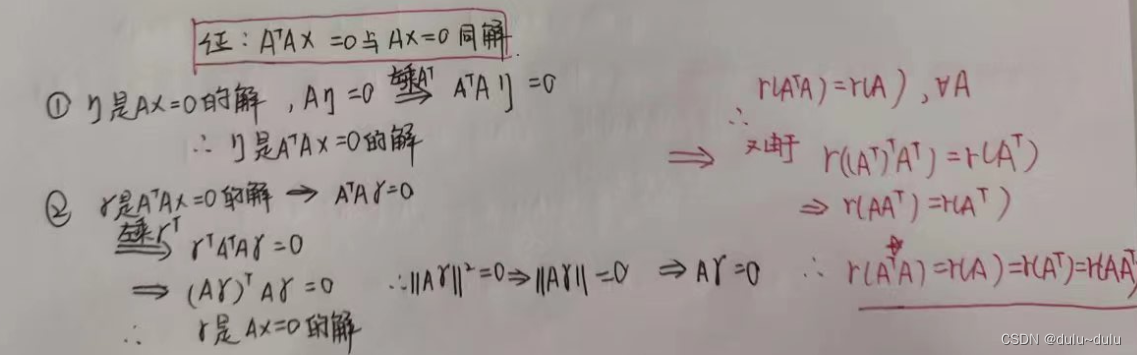 证：AᵀAX=0与AX=0同解
① η是AX=0的解，Aη=0 左乘Aᵀ⟹ AᵀAη=0
∴ η是AᵀAX=0的解
② γ是AᵀAX=0的解 → AᵀAγ=0
左乘γᵀ⟹ γᵀAᵀAγ=0
⟹ (Aγ)ᵀAγ=0 ∴||Aγ||²=0⟹||Aγ||=0 ⟹Aγ=0
∴ γ是AX=0的解
∴ r(AᵀA)=r(A)，∀A
⟹ 又由于 r((Aᵀ)ᵀAᵀ)=r(Aᵀ)
⟹ r(AAᵀ)=r(Aᵀ)
∴ r(AᵀA)=r(A)=r(Aᵀ)=r(AAᵀ
CSDN @dulu~dulu